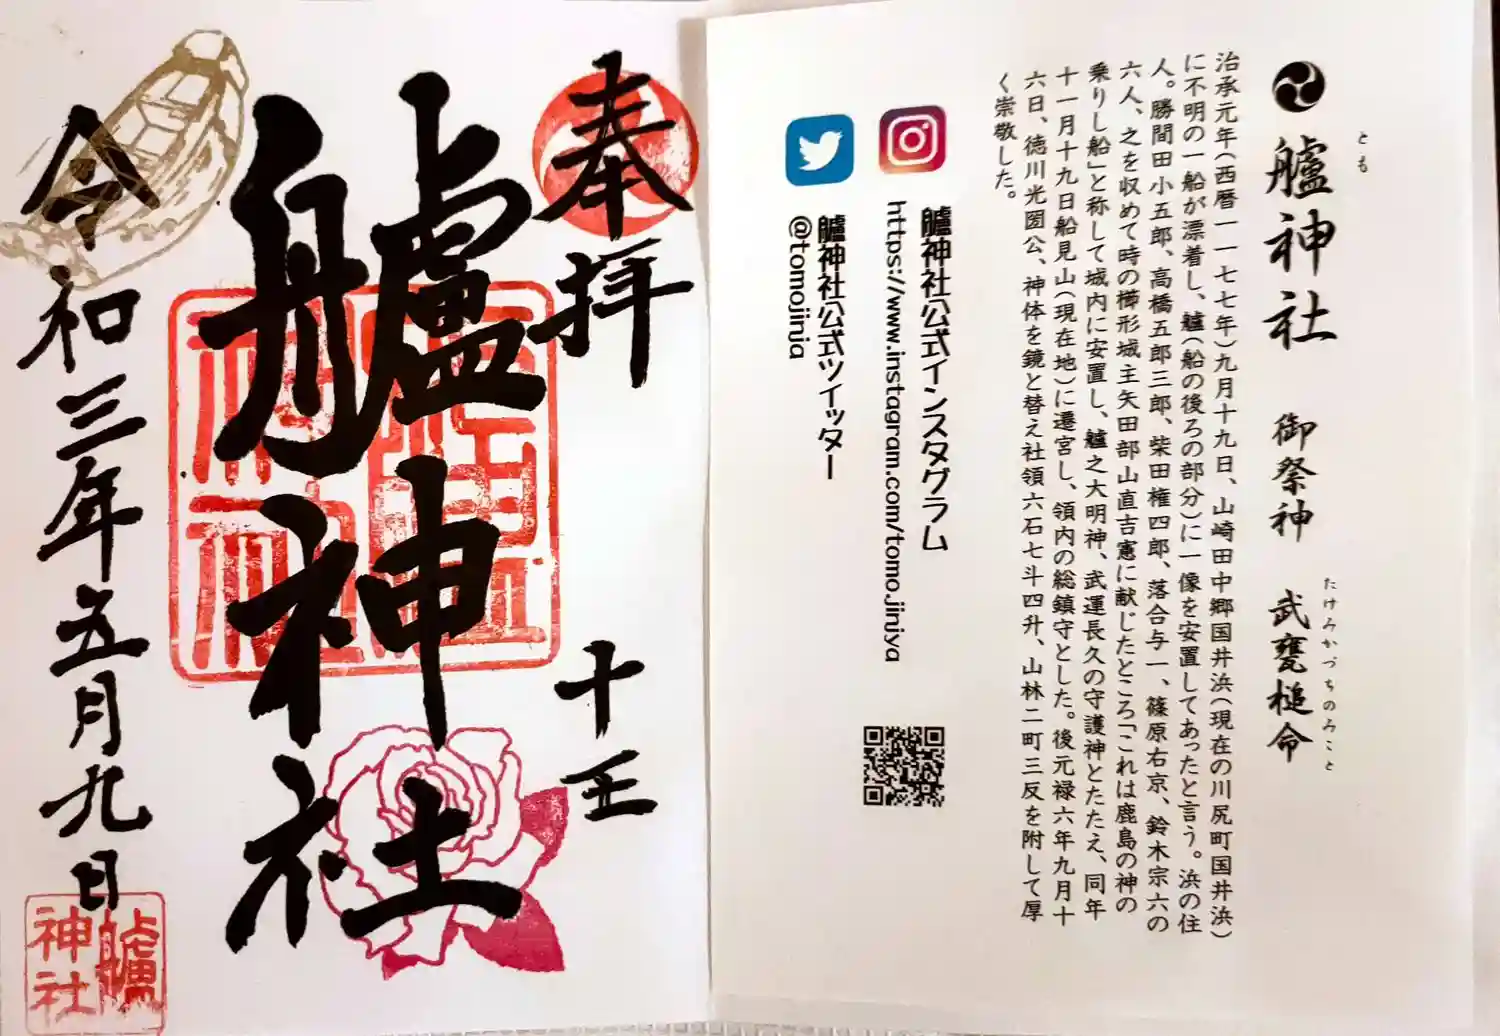 奉拝
十王
艫神社
令和三年五月九日
艫神社
とも
艫神社 御祭神 武甕槌命
たけみかづちのみこと
治承元年(西暦一一七七年)九月十九日、山崎田中郷国井浜(現在の川尻町国井浜)
に不明の一船が漂着し、艫(船の後ろの部分)に一像を安置してあったと言う。浜の住
人。勝間田小五郎、高橋五郎三郎、柴田権四郎、落合与一、篠原右京、鈴木宗六の
六人、之を収めて時の櫛形城主矢田部山直吉憲に献じたところ「これは鹿島の神の
乗りし船」と称して城内に安置し、艫之大明神、武運長久の守護神とたたえ、同年
十一月十九日船見山(現在地)に遷宮し、領内の総鎮守とした。後元禄六年九月十
六日、徳川光圀公、神体を鏡と替え社領六石七斗四升、山林二町三反を附して厚
く崇敬した。
艫神社公式インスタグラム
https://www.instagram.com/tomojinjya
艫神社公式ツイッター
@tomojinja